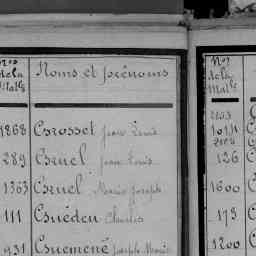 Nos
de la
Matle
Noms et prénoms
1868 Crosset Jean Louis
289 Cruel Jean Louis
1363 Cruel Marie Joseph
111 Cuéden Charles
931 Cuemené Joseph Marie
Nos
de la
Matle
2253
126
1600
179
1200